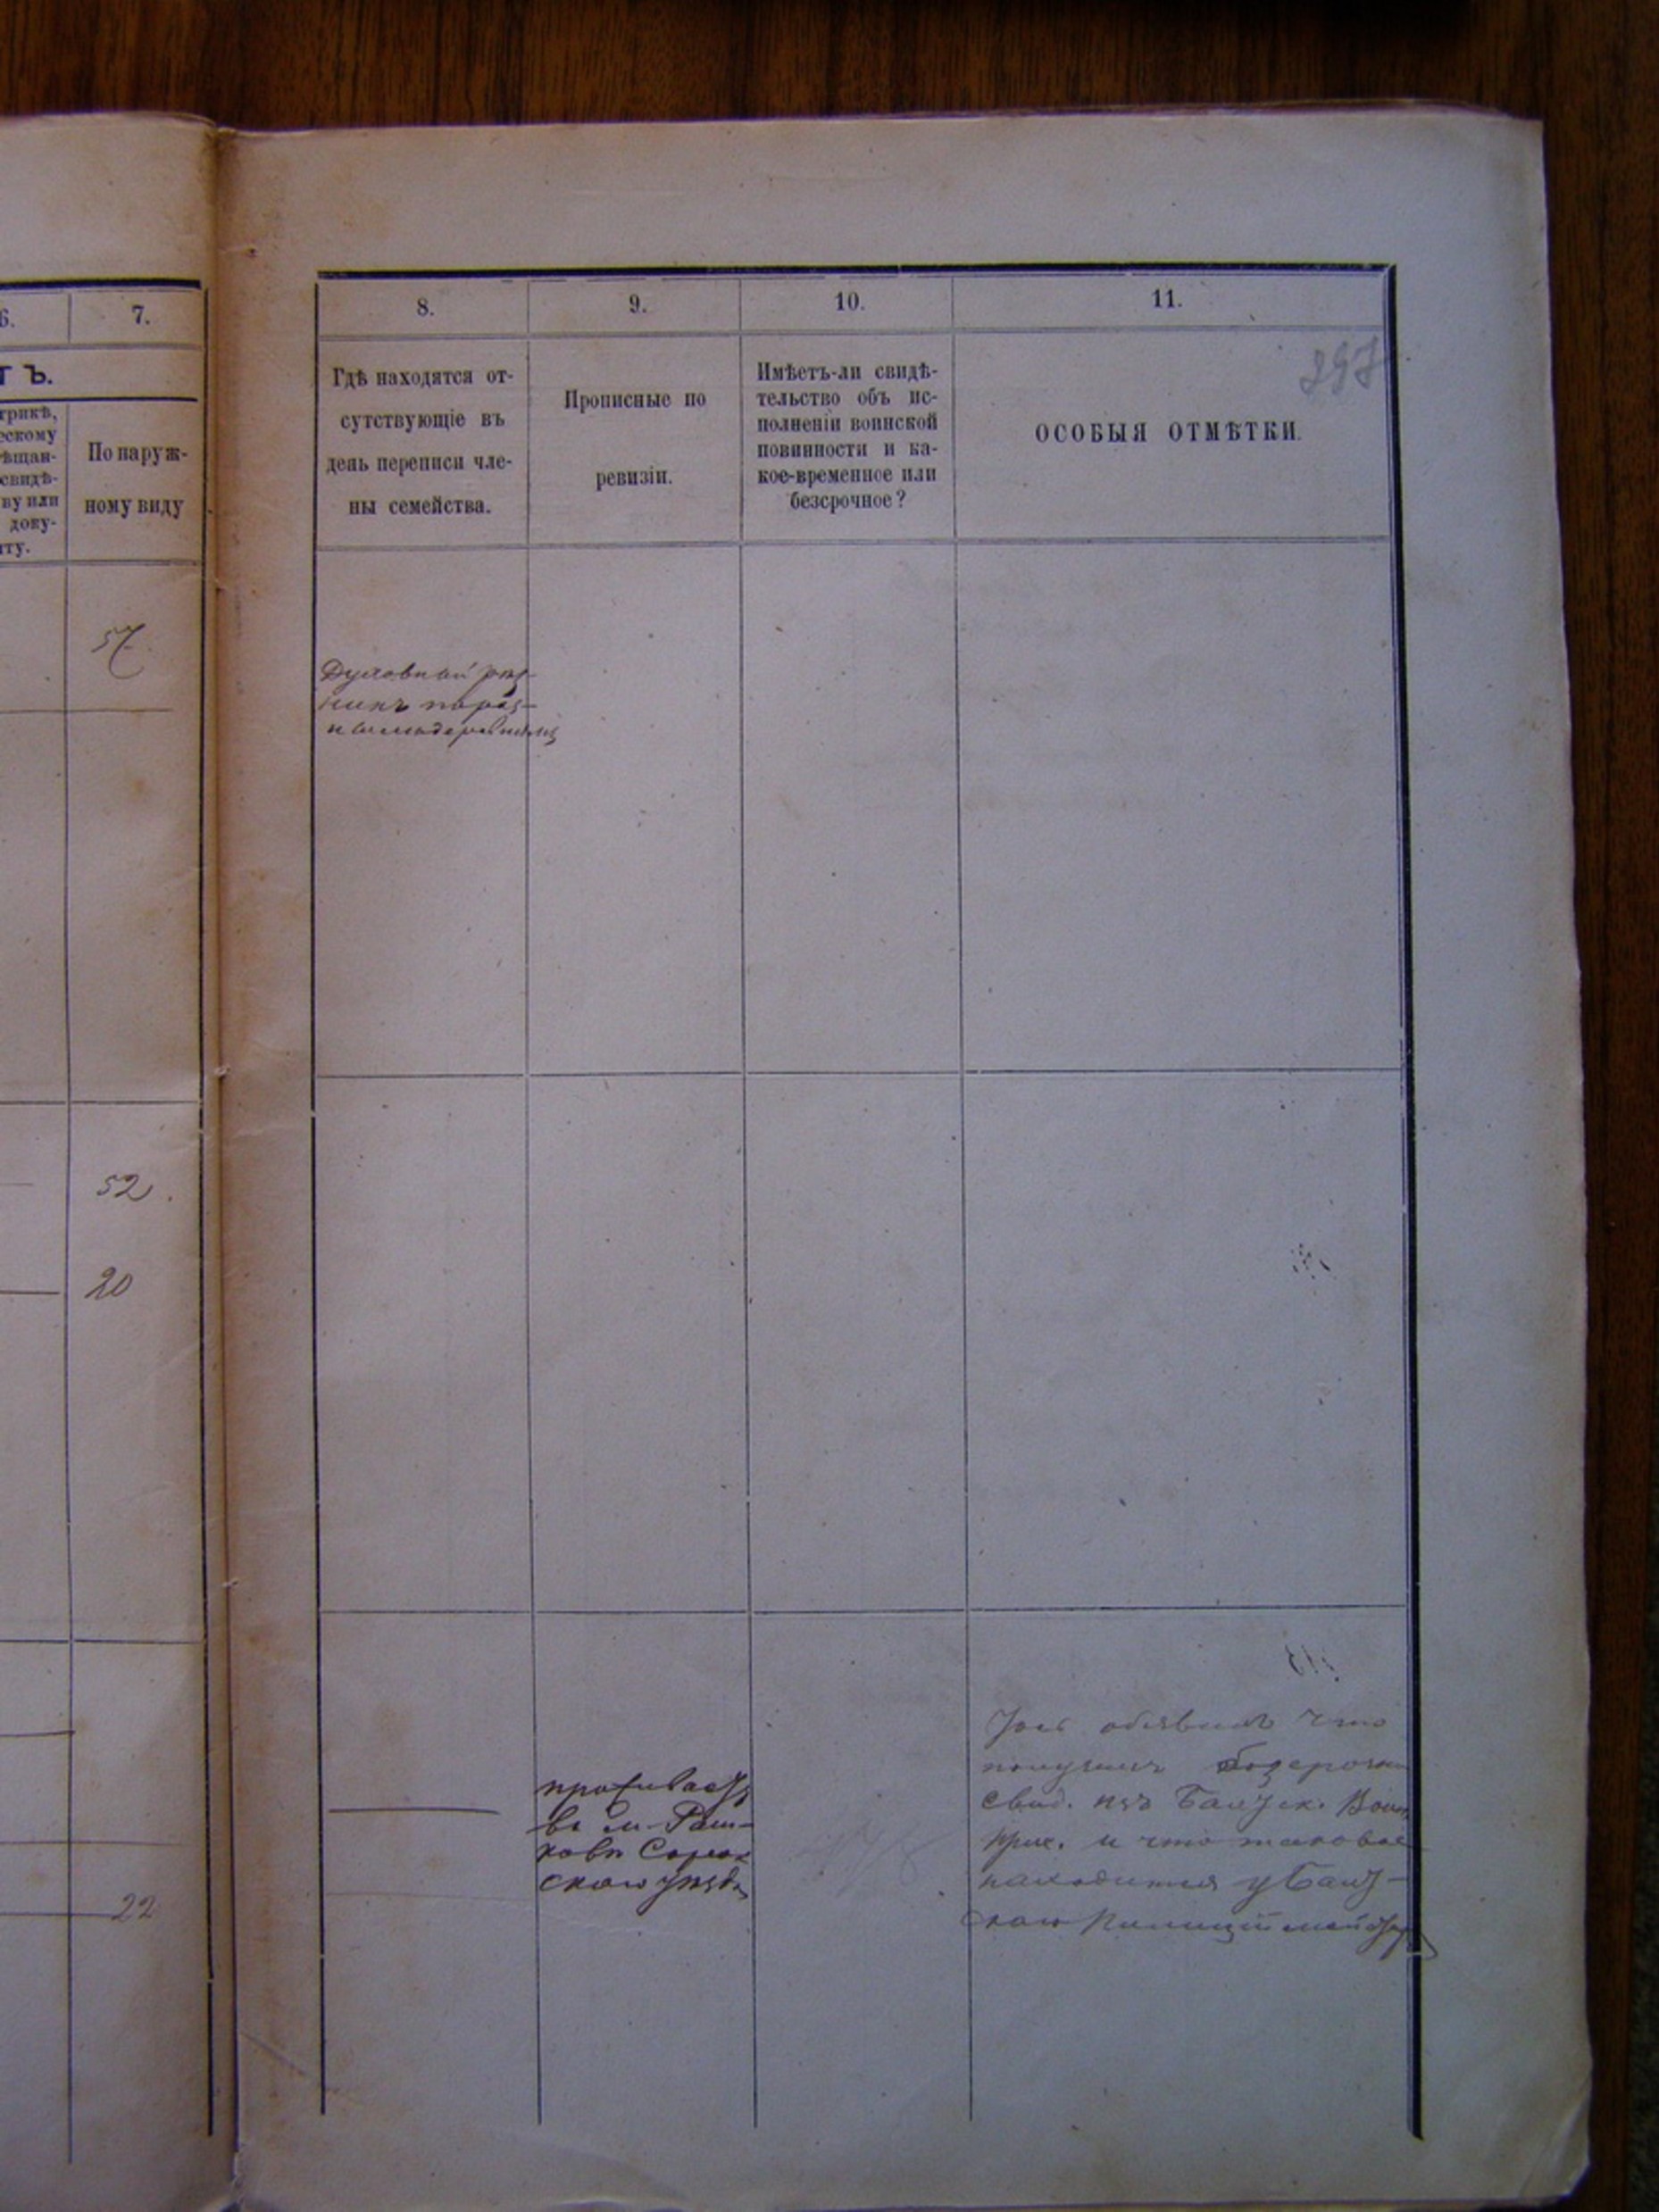 6.
7.
ТЪ.
трикѣ,
ескому
ѣщан-
свидѣ-
ву или
доку-
нту.
По наруж-
ному виду
57
52.
20
22
8.
9.
10.
11.
Гдѣ находятся от-
сутствующіе въ
день переписи чле-
ны семейства.
Прописные по
ревизіи.
Имѣетъ-ли свидѣ-
тельство объ ис-
полненіи воинской
повинности и ка-
кое-временное или
безсрочное?
ОСОБЫЯ ОТМѢТКИ.
297
Духовный
по раз-
нымъ деревнямъ
проживаетъ
въ м. Раш-
ковѣ Сорок
скаго уѣзда
объявилъ что
получилъ безсрочн
свид. изъ Балтск. Воин.
прис. и что таковое
находится у Балт-
скаго Полицiймейстера